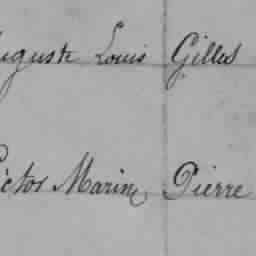 Auguste Louis Gilles
Victor Marin, Pierre